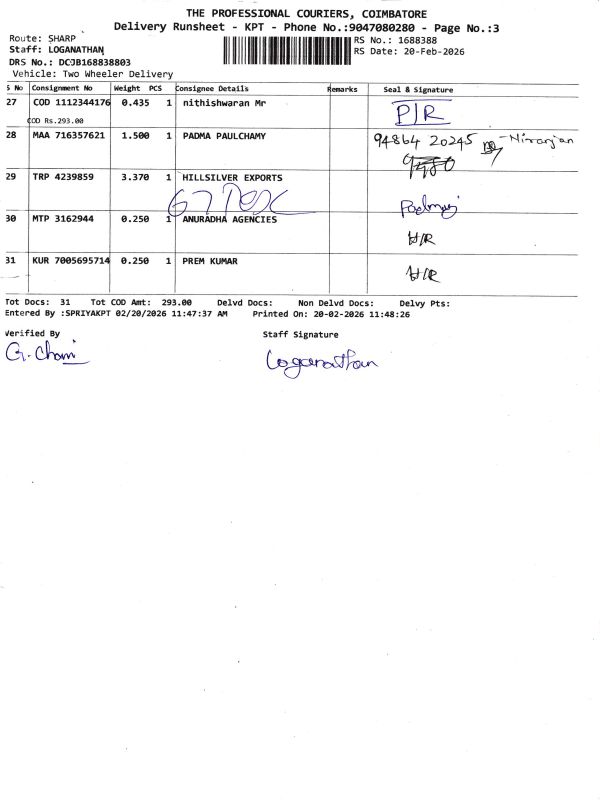 THE PROFESSIONAL COURIERS, COIMBATORE
Delivery Runsheet - KPT - Phone No.:9047080280 - Page No.:3
Route: SHARP
RS No.: 1688388
Staff: LOGANATHAN
RS Date: 20-Feb-2026
DRS No.: DCJB168838803
Vehicle: Two Wheeler Delivery
S No Consignment No Weight PCS Consignee Details Remarks Seal & Signature
27 COD 1112344176 0.435 1 nithishwaran Mr P/R
COD Rs.293.00
28 MAA 716357621 1.500 1 PADMA PAULCHAMY 94864 20245 - Niranjan
29 TRP 4239859 3.370 1 HILLSILVER EXPORTS
30 MTP 3162944 0.250 1 ANURADHA AGENCIES H/R
31 KUR 7005695714 0.250 1 PREM KUMAR H/R
Tot Docs: 31 Tot COD Amt: 293.00 Delvd Docs: Non Delvd Docs: Delvy Pts:
Entered By :SPRIYAKPT 02/20/2026 11:47:37 AM Printed On: 20-02-2026 11:48:26
Verified By Staff Signature
Loganathan